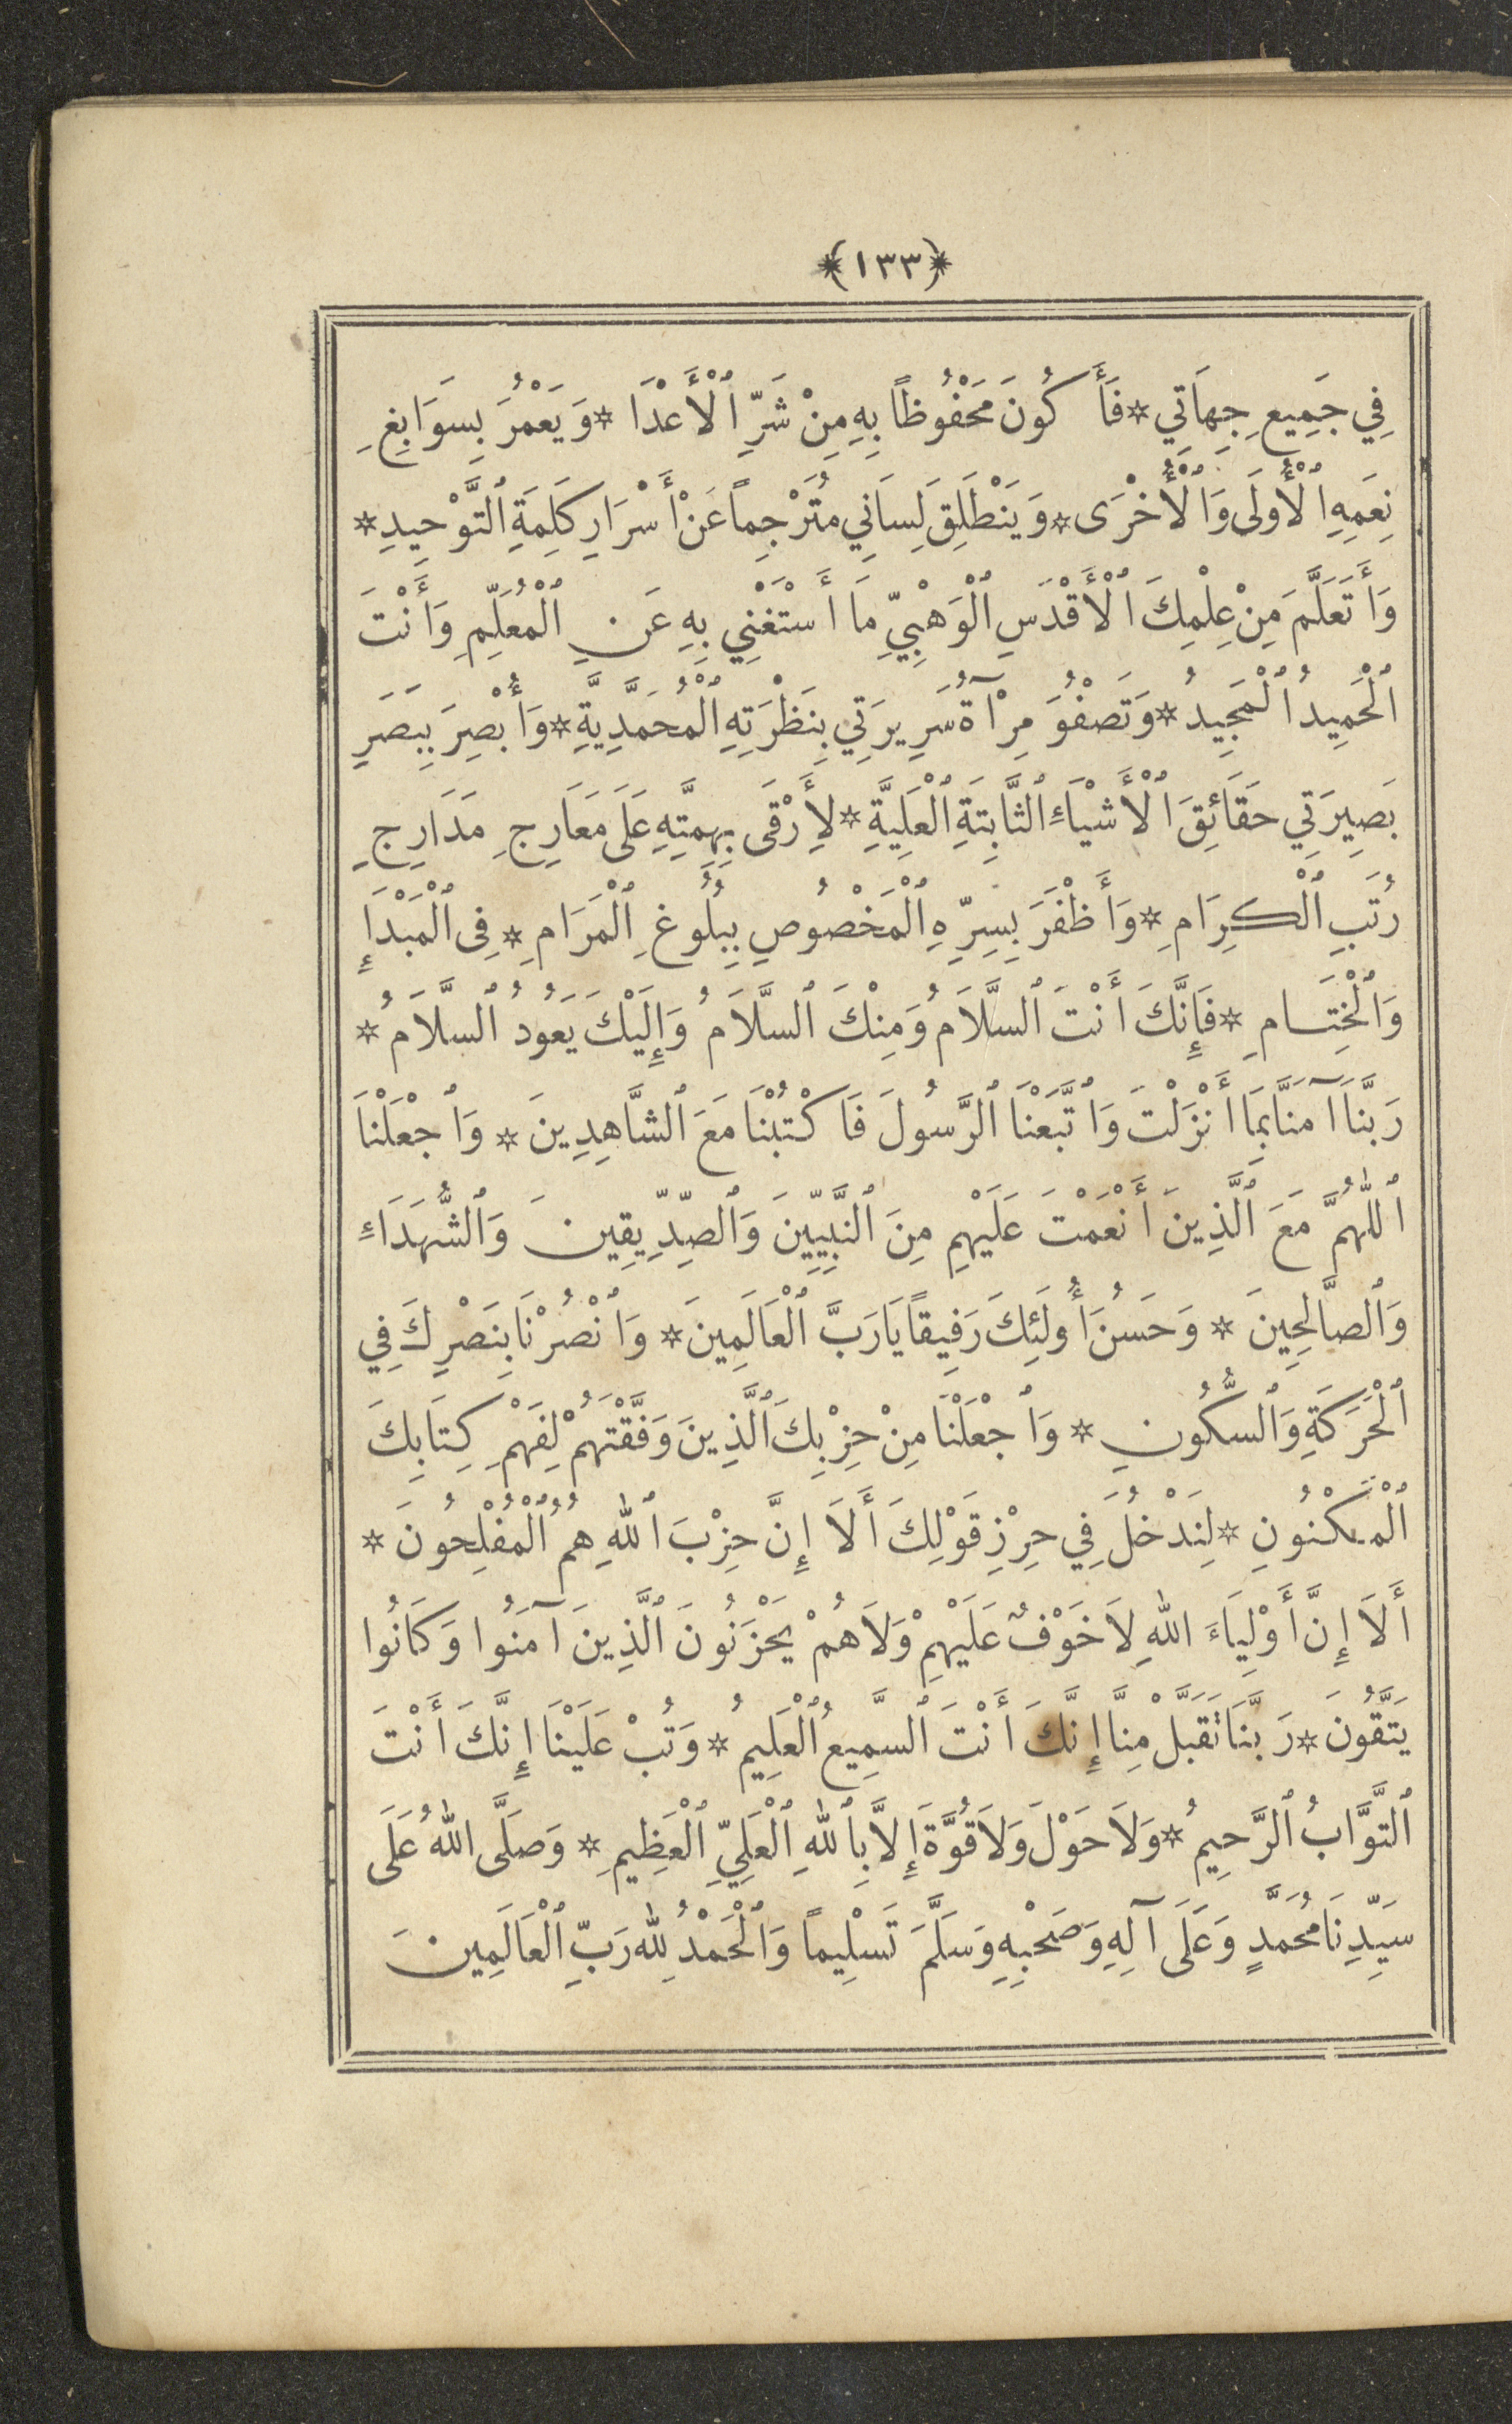 ﴿١٣٣﴾
فِي جَمِيعِ جِهَاتِي * فَأَكُونَ مَحْفُوظاً بِهِ مِنْ شَرِّ ٱلْأَعْدَا * وَيَعْمُرَ بِسَوَابِغِ
نِعَمِهِ ٱلْأُولَى وَٱلْأُخْرَى * وَيَنْطَلِقَ لِسَانِي مُتَرْجِماً عَنْ أَسْرَارِ كَلِمَةِ ٱلتَّوْحِيدِ *
وَأَتَعَلَّمَ مِنْ عِلْمِكَ ٱلْأَقْدَسِ ٱلْوَهْبِيِّ مَا أَسْتَغْنِي بِهِ عَنِ ٱلْمُعَلِّمِ وَأَنْتَ
ٱلْحَمِيدُ ٱلْمَجِيدُ * وَتَصْفُوَ مِرْآةُ سَرِيرَتِي بِنَظْرَتِهِ ٱلْمُحَمَّدِيَّةِ * وَأُبْصِرَ بِبَصَرِ
بَصِيرَتِي حَقَائِقَ ٱلْأَشْيَاءِ ٱلثَّابِتَةِ ٱلْعَلِيَّةِ * لِأَرْقَى بِهِمَّتِهِ عَلَى مَعَارِجِ مَدَارِجِ
رُتَبِ ٱلْكِرَامِ * وَأَظْفَرَ بِسِرِّهِ ٱلْمَخْصُوصِ بِبُلُوغِ ٱلْمَرَامِ * فِى ٱلْمَبْدَإِ
وَٱلْخِتَامِ * فَإِنَّكَ أَنْتَ ٱلسَّلَامُ وَمِنْكَ ٱلسَّلَامُ وَإِلَيْكَ يَعُودُ ٱلسَّلَامُ *
رَبَّنَا آمَنَّا بِمَا أَنْزَلْتَ وَٱتَّبَعْنَا ٱلرَّسُولَ فَاكْتُبْنَا مَعَ ٱلشَّاهِدِينَ * وَٱجْعَلْنَا
ٱللّٰهُمَّ مَعَ ٱلَّذِينَ أَنْعَمْتَ عَلَيْهِمِ مِنَ ٱلنَّبِيِّينَ وَٱلصِّدِّيقِينَ وَٱلشُّهَدَاءِ
وَٱلصَّالِحِينَ * وَحَسُنَ أُولَئِكَ رَفِيقاً يَارَبَّ ٱلْعَالَمِينَ * وَٱنْصُرْنَا بِنَصْرِكَ فِي
ٱلْحَرَكَةِ وَٱلسُّكُونِ * وَٱجْعَلْنَا مِنْ حِزْبِكَ ٱلَّذِينَ وَفَّقْتَهُمْ لِفَهْمِ كِتَابِكَ
ٱلْمَكْنُونِ * لِنَدْخُلَ فِي حِرْزِ قَوْلِكَ أَلَا إِنَّ حِزْبَ ٱللهِ هُمُ ٱلْمُفْلِحُونَ *
أَلَا إِنَّ أَوْلِيَاءَ اللهِ لَا خَوْفٌ عَلَيْهِمْ وَلَا هُمْ يَحْزَنُونَ ٱلَّذِينَ آمَنُوا وَكَانُوا
يَتَّقُونَ * رَبَّنَا تَقَبَّلْ مِنَّا إِنَّكَ أَنْتَ ٱلسَّمِيعُ ٱلْعَلِيمُ * وَتُبْ عَلَيْنَا إِنَّكَ أَنْتَ
ٱلتَّوَّابُ ٱلرَّحِيمُ * وَلَا حَوْلَ وَلَا قُوَّةَ إِلَّا بِٱللهِ ٱلْعَلِيِّ ٱلْعَظِيمِ * وَصَلَّى اللهُ عَلَى
سَيِّدِنَا مُحَمَّدٍ وَعَلَى آلِهِ وَصَحْبِهِ وَسَلَّمَ تَسْلِيماً وَٱلْحَمْدُ لِلهِ رَبِّ ٱلْعَالَمِينَ